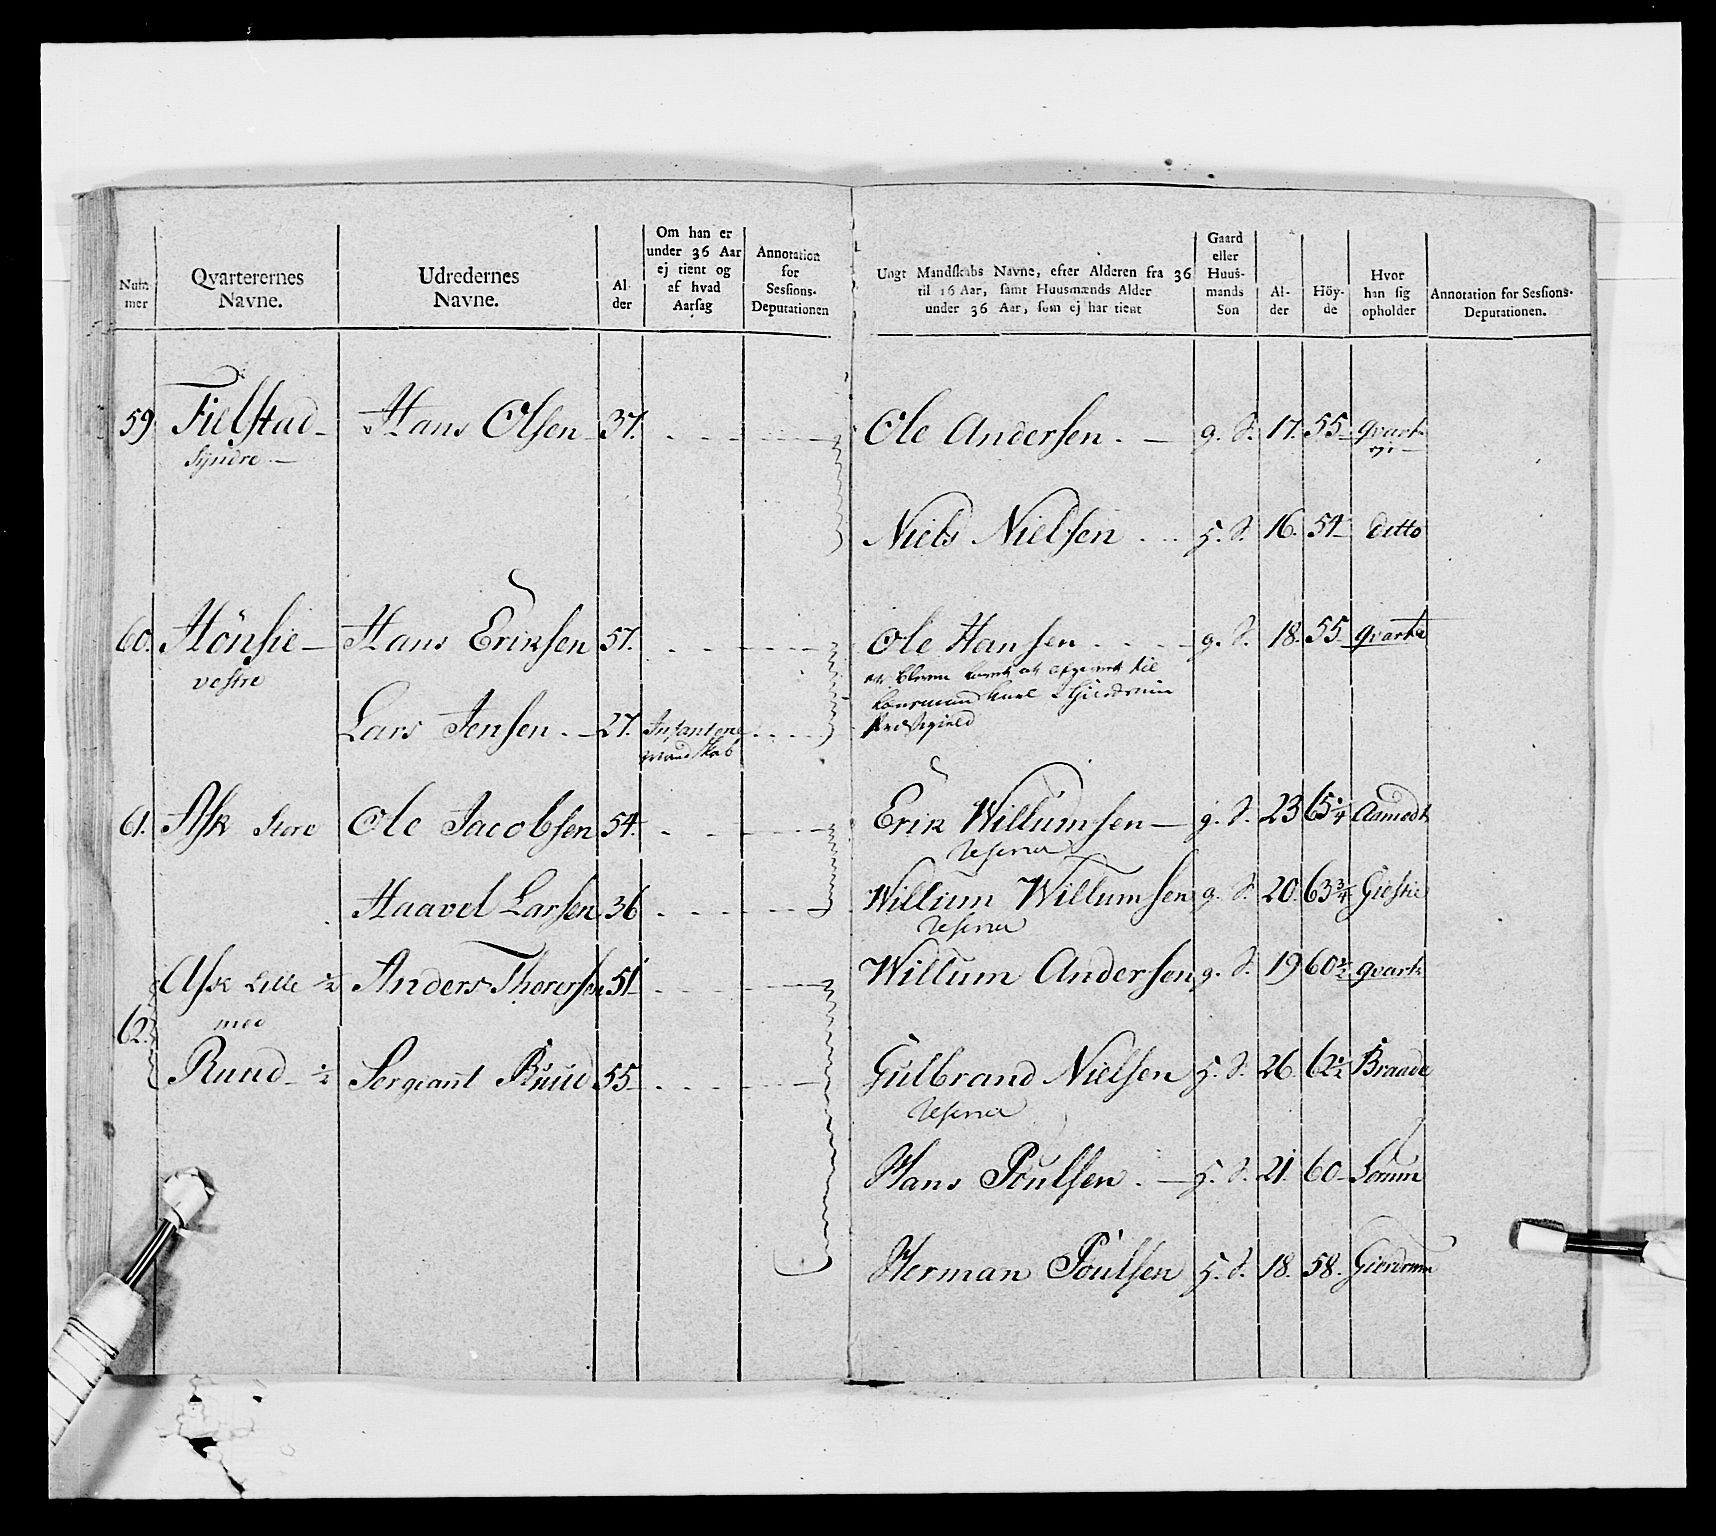 Num-
mer
Qvarterernes
Navne.
Udredernes
Navne.
Al-
der
Om han er
under 36 Aar
ej tient og
af hvad
Aarsag
Annotation
for
Sessions-
Deputationen
Ungt Mandskabs Navne, efter Alderen fra 36
til 16 Aar, samt Huusmænds Alder
under 36 Aar, som ej har tient
Gaard
eller
Huus-
mands
Son
Al-
der
Höy-
de
Hvor
han sig
opholder
Annotation for Sessions-
Deputationen.
59 Fielstad Hans Olsen 37. Ole Andersen. g. S. 17. 55 qvart
Syndre
Niels Nielsen h. S. 16. 54 ditto
60. Hönsie Hans Eriksen 57. Ole Hansen g. S. 18. 55 qvarte
vestre
Lars Jensen 27. Infanterie
Mandskab
61. Ask Store Ole Jacobsen 54. Erik Willumsen g. S. 23 65 1/4
Reserva
Haavel Larsen 36 Willium Willumsen g. S. 20. 63 3/4 Giestie
Reserva
Ask Lille 1/2 Anders Thorersen 51 Willum Andersen g. S. 19 60 1/2 qvart
62. med
Ruud 1/2 Sergiant Ruud 55 Gulbrand Nielsen h. S. 26 62 1/2 Braade
Reserva
Hans Poulsen h. S. 21. 60 Sorum
Herman Poulsen h. S. 18. 58. Gierdrum